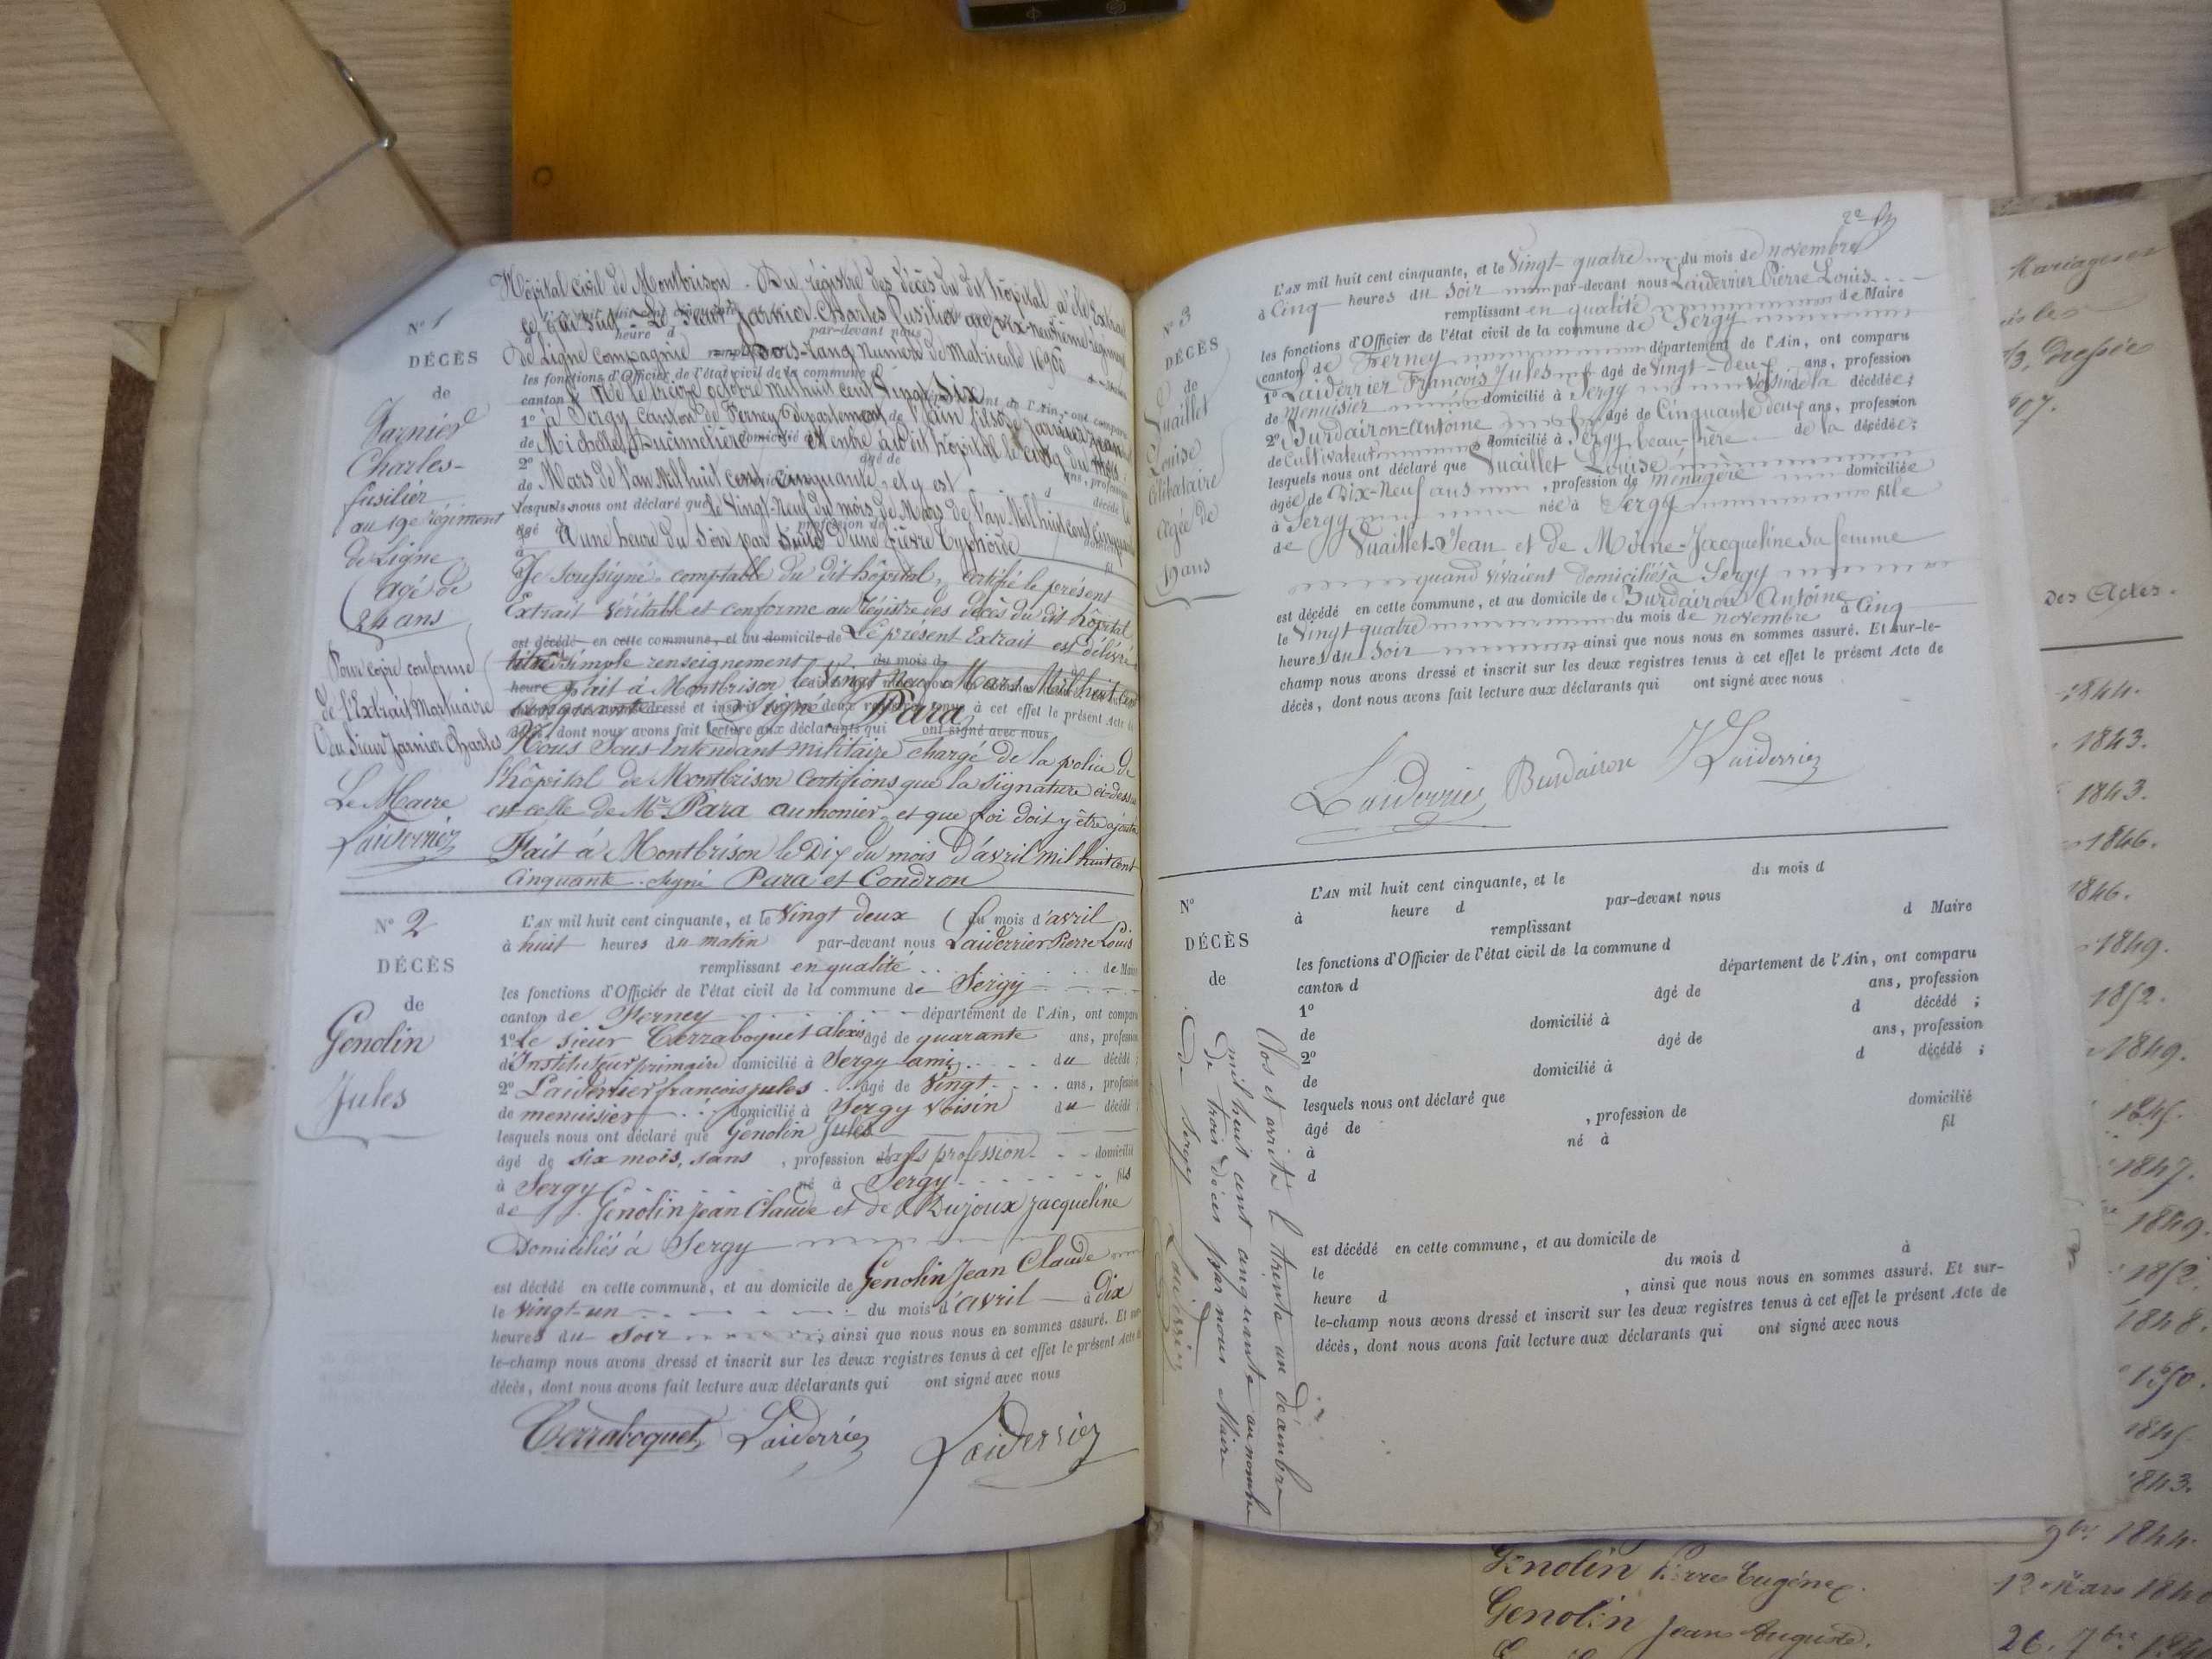 Hôpital civil de Montbrison - Du régistre des décès du dit hôpital a été Extrait
ce qui suit - Le Sieur Jarnier Charles fusilier au dix-neuvième régiment
heure d par-devant nous
de Ligne Compagnie hors-rang Numéro de Matricule 16900
N° 1
les fonctions d'Officier de l'état civil de la commune d
DÉCÈS
canton d Né le treize octobre mil huit cent Vingt Six
département de l'Ain, ont comparu
de
1° à Sergy Canton de Ferney Département de l'ain fils de Jarnier Jean
Jarnier
de Michelle domicilié à et entré audit hôpital le cinq du mois
Charles-
2° âgé de
fusilier
de Mars de l'an Mil huit cent cinquante, et y est
ans, profession
au 19e régiment
lesquels nous ont déclaré que le Vingt-Neuf du mois de Mars de l'an Mil huit cent cinquante
de Ligne
âgé d profession de
à A une heure du Soir par Suite d'une fièvre Typhoïde
(agé de
24 ans
Je soussigné, comptable du dit hôpital, certifié le présent
Extrait Véritable et conforme au Régistre des décès du dit hôpital
est décédé en cette commune, et au domicile de Le présent Extrait est délivré
Pour copie conforme
titre simple renseignement du mois d
de l'Extrait Mortuaire
heure d fait à Montbrison le Vingt Neuf Mars Mil huit cent
du Sieur Jarnier Charles
cinquante dressé et inscrit sur les deux registres tenus à cet effet le présent Acte de
Signé Para
décès, dont nous avons fait lecture aux déclarants qui ont signé avec nous
Nous Sous-Intendant militaire chargé de la police de
l'hôpital de Montbrison Certifions que la signature ci-dessus
Le Maire
est celle de Mr Para aumonier, et que foi doit y être ajoutée
Laiderrier
Fait à Montbrison le Dix du mois d'avril mil huit cent
Cinquante. Signé Para et Condron
N° 2
L'AN mil huit cent cinquante, et le Vingt deux du mois d'avril
à huit heures du matin par-devant nous Laiderrier Pierre Louis
DÉCÈS
remplissant en qualité de Maire
les fonctions d'Officier de l'état civil de la commune de Sergy
de
canton de Ferney département de l'Ain, ont comparu
Genolin
1° Le sieur Cerraboquet alexis âgé de quarante ans, profession
d'Instituteur primaire domicilié à Sergy l'ami du décédé;
Jules
2° Laiderrier françois jules âgé de Vingt ans, profession
de menuisier domicilié à Sergy Voisin du décédé;
lesquels nous ont déclaré que Genolin Jules
âgé de six mois, sans, profession sans profession domicilié
à Sergy né à Sergy fils
de Genolin jean Claude et de Dujoux jacqueline
Domiciliés à Sergy
est décédé en cette commune, et au domicile de Genolin Jean Claude
le Vingt-un du mois d'avril à Dix
heures du Soir ainsi que nous nous en sommes assuré. Et sur-
le-champ nous avons dressé et inscrit sur les deux registres tenus à cet effet le présent Acte de
décès, dont nous avons fait lecture aux déclarants qui ont signé avec nous
Cerraboquet Laiderrier Laiderrier
N° 3
L'AN mil huit cent cinquante, et le Vingt-quatre du mois de novembre
à Cinq heures du Soir par-devant nous Laiderrier Pierre Louis
DÉCÈS
remplissant en qualité de Maire
de
les fonctions d'Officier de l'état civil de la commune de Sergy
canton de Ferney département de l'Ain, ont comparu
Vuaillet
1° Laiderrier François Jules âgé de Vingt-deux ans, profession
Louise
de Menuisier domicilié à Sergy voisin de la décédée;
célibataire
2° Burdairon-Antoine âgé de Cinquante deux ans, profession
Agée de
de Cultivateur domicilié à Sergy beau-frère de la décédée;
19 ans
lesquels nous ont déclaré que Vuaillet Louise
âgée de Dix-Neuf ans, profession de Menagère domiciliée
à Sergy née à Sergy fille
de Vuaillet-Jean et de Moine-Jacqueline sa femme
quand vivaient domiciliés à Sergy
est décédé en cette commune, et au domicile de Burdairon Antoine
le Vingt quatre du mois de novembre à Cinq
heures du Soir ainsi que nous nous en sommes assuré. Et sur-le-
champ nous avons dressé et inscrit sur les deux registres tenus à cet effet le présent Acte de
décès, dont nous avons fait lecture aux déclarants qui ont signé avec nous
Laiderrier Burdairon Laiderrier
N°
L'AN mil huit cent cinquante, et le du mois d
à heure d par-devant nous
DÉCÈS
remplissant d Maire
de
les fonctions d'Officier de l'état civil de la commune d
canton d département de l'Ain, ont comparu
1° âgé de ans, profession
de domicilié à d décédé;
2° âgé de ans, profession
de domicilié à d décédé;
lesquels nous ont déclaré que
âgé de , profession de domicilié
à né à fil
d
est décédé en cette commune, et au domicile de
le du mois d à
heure d , ainsi que nous nous en sommes assuré. Et sur-
le-champ nous avons dressé et inscrit sur les deux registres tenus à cet effet le présent Acte de
décès, dont nous avons fait lecture aux déclarants qui ont signé avec nous
Clos et arrêté le trente un décembre
mil huit cent cinquante au nombre
de trois décès par nous Maire
de Sergy Laiderrier
Mariages et
Des Actes.
1844.
1843.
1843.
1846.
1846.
1849.
1852.
1849.
1847.
1849.
1852.
1848.
1850.
1845
1843.
9bre 1844.
Genolin Pierre Eugène. 12 Mars
Genolin Jean Auguste. 26. 7bre